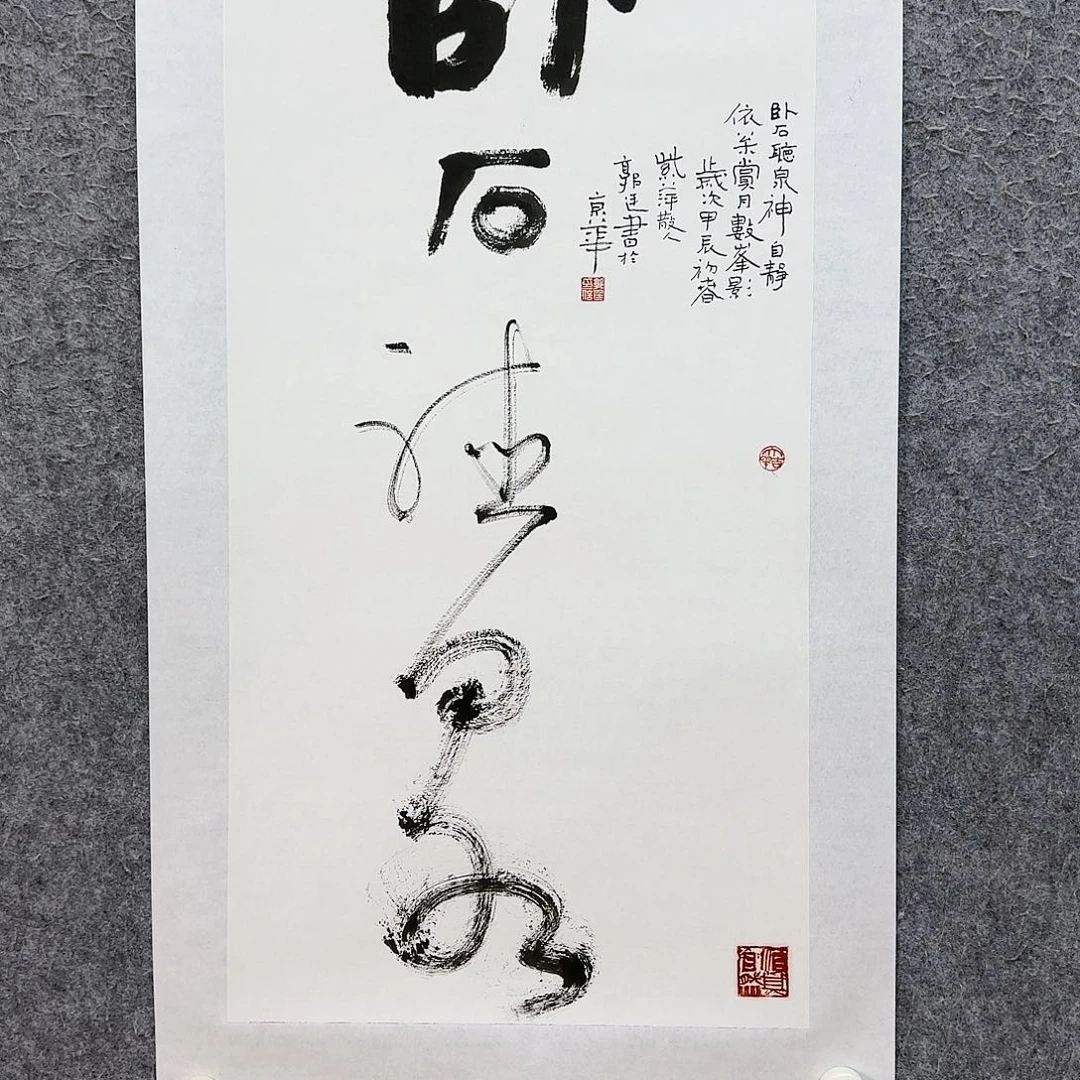 卧石聽泉
卧石聽泉神自靜
依案賞月數峯影
歲次甲辰初春
紫萍散人
郭廷書於
京華